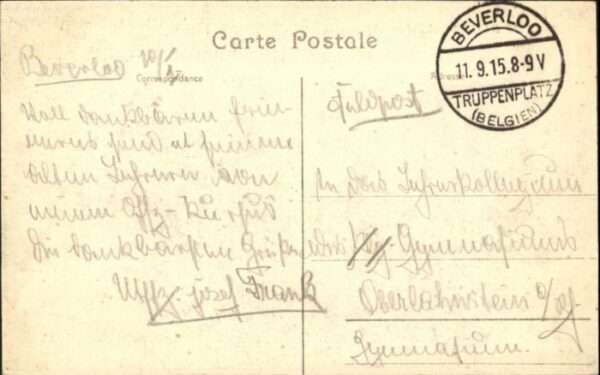 Carte Postale
Correspondance
Adresse
BEVERLOO
11.9.15.8-9V
TRUPPENPLATZ
(BELGIEN)
Beverloo 10/9
Feldpost
Voll dankbaren
seinen
alten Lehrern von
einem Offz-Kursus
die dankbarsten Grüße
Uffz. Josef Frank
An das Lehrerkollegium
des Kg. Gymnasiums
Oberlahnstein a/Rh
Gymnasium.